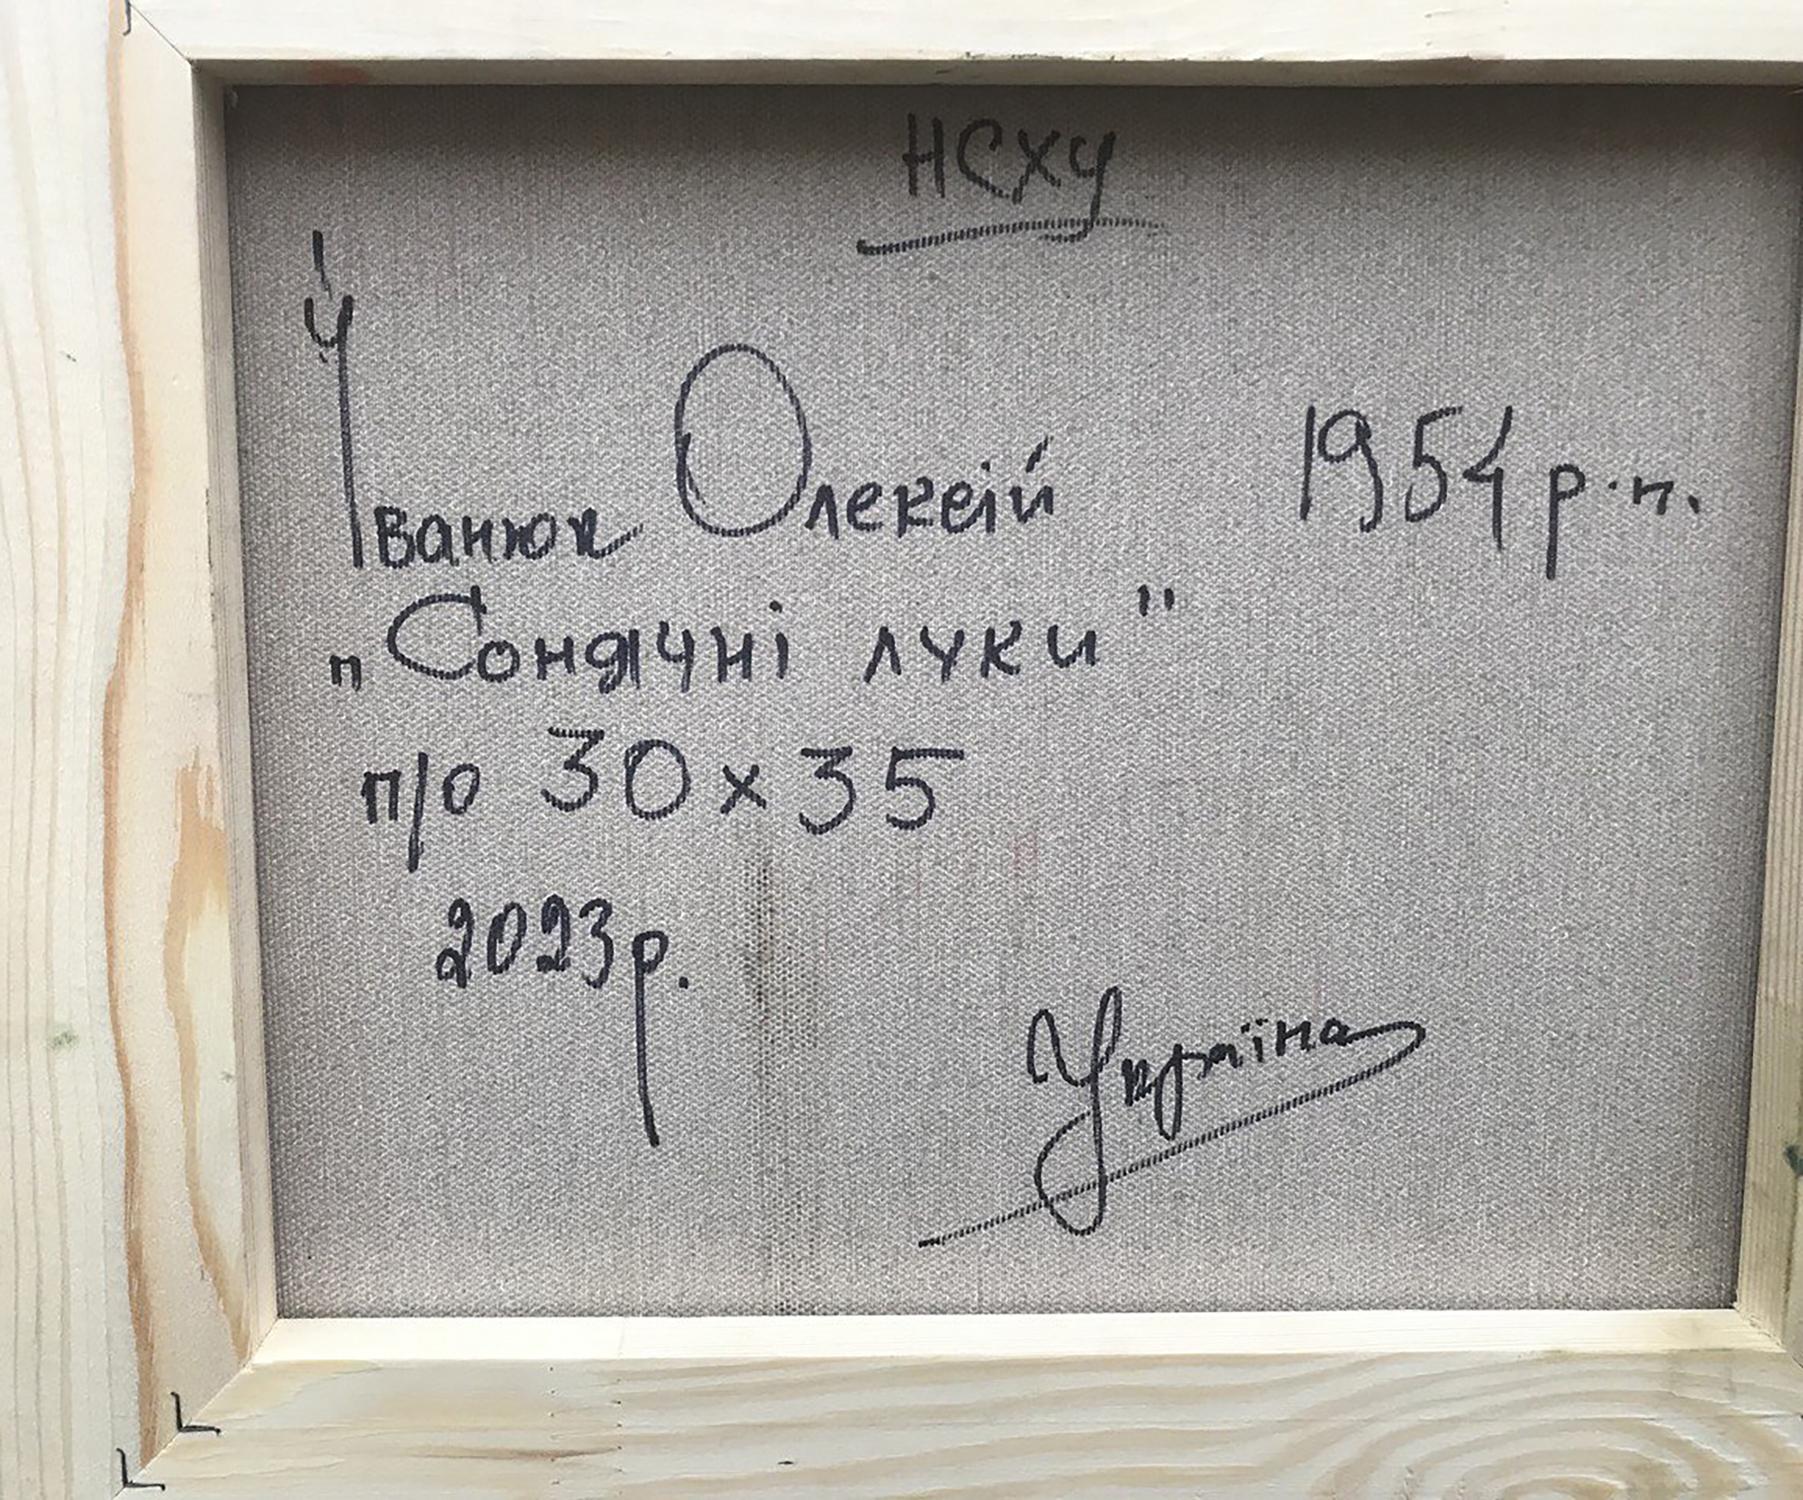 НСХУ
Іванюк Олексій 1954 р.н.
"Сонячні луки"
п/о 30х35
2023р.
Україна